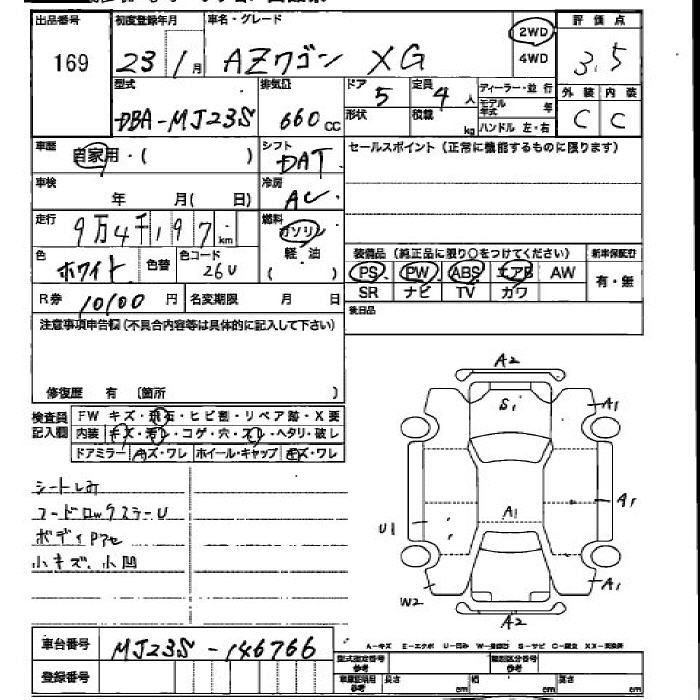 出品番号 169
初度登録年月 23 / 1 月
車名・グレード AZワゴン XG
2WD
4WD
評価点 3.5
型式 DBA-MJ23S
排気量 660 cc
ドア 5
形状
定員 4 人
積載 kg
ディーラー・並行
モデル年式 年
ハンドル 左・右
外装 C
内装 C
車歴 自家用・( )
シフト DAT
セールスポイント(正常に機能するものに限ります)
車検 年 月( 日)
冷房 AC
走行 9万4千197 km
燃料 ガソリン
軽油
( )
色 ホワイト 色替
色コード 26U
装備品(純正品に限り○をつけてください)
新車保証書
PS PW ABS エアB AW
SR ナビ TV カワ
有・無
R券 10100 円
名変期限 月 日
後日品
注意事項申告欄(不具合内容等は具体的に記入して下さい)
修復歴 有 〔箇所 〕
検査員記入欄
FW キズ・飛石・ヒビ割・リペア跡・X要
内装 キズ・汚レ・コゲ・穴・スレ・ヘタリ・破レ
ドアミラー キズ・ワレ ホイール・キャップ キズ・ワレ
シートしみ
ボディPアセ
小キズ、小凹
A2
S1
A1
A1
A1
U1
W2
A1
A2
A-キズ E-エクボ U-凹み W-補修跡 S-サビ C-腐食 XX-交換済
車台番号 MJ23S-146766
登録番号
型式指定番号 参考
類別区分番号 参考
車庫証明用 参考 長さ cm 幅 cm 高さ cm